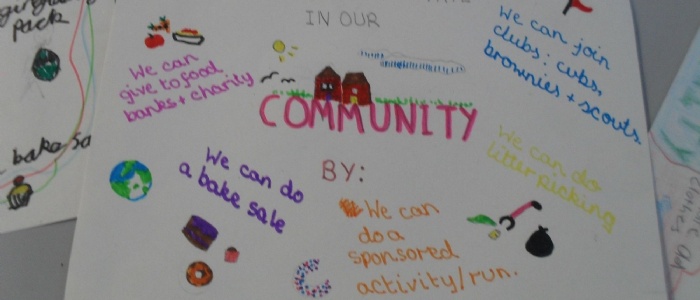 IN OUR
We can
give to food
banks + charity
We can join
clubs: cubs,
brownies + scouts.
COMMUNITY
BY:
We can do
a bake sale
We can
do a
sponsored
activity/run.
We can do
litter picking
pack
bake sa